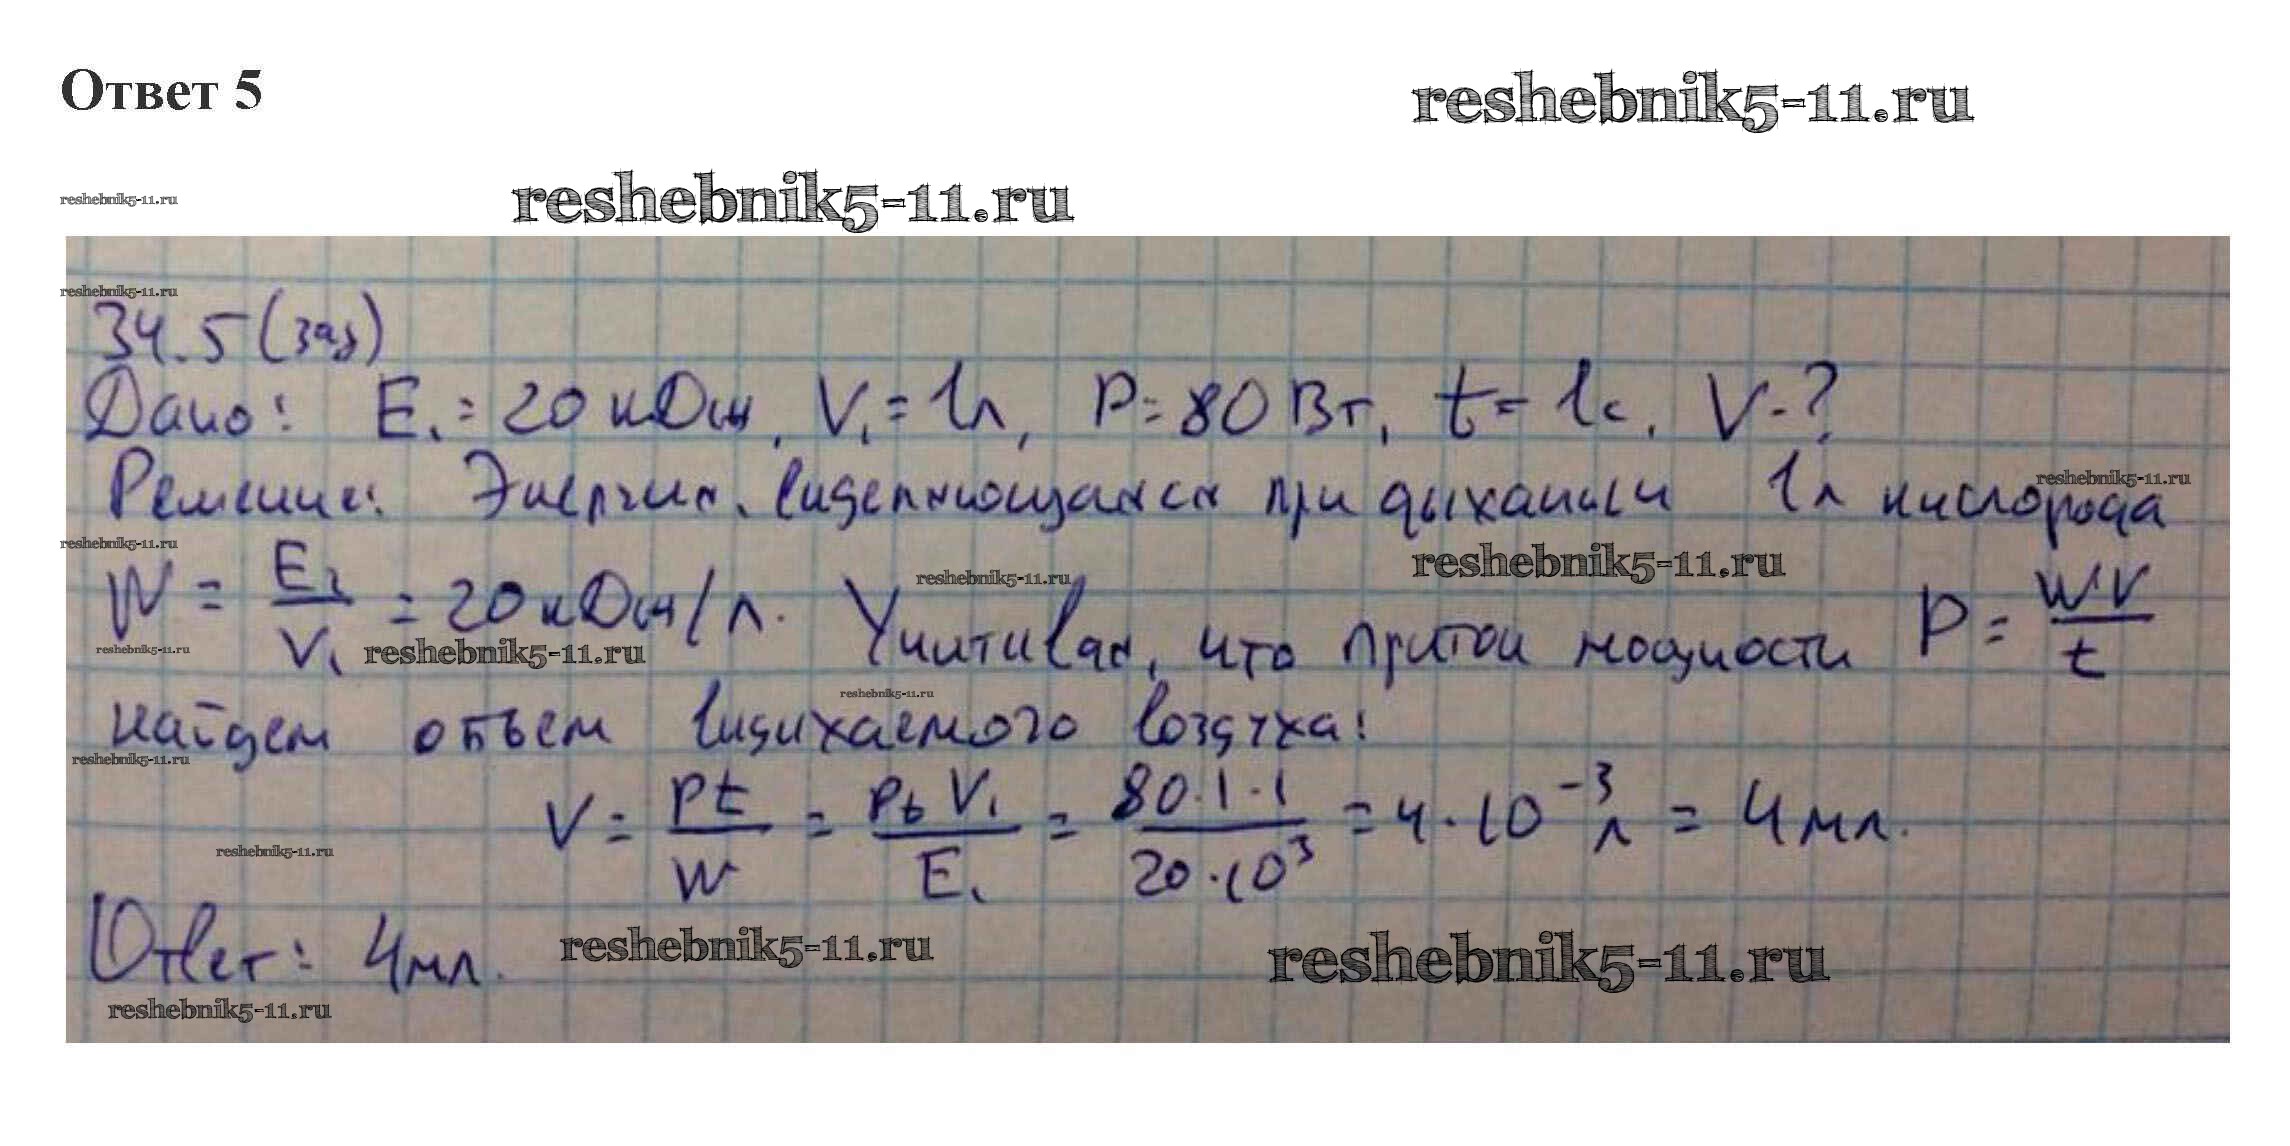 Ответ 5
reshebnik5-11.ru
reshebnik5-11.ru
reshebnik5-11.ru
reshebnik5-11.ru
34.5 (зад)
Дано: E₁ = 20 кДж, V₁ = 1л, P = 80 Вт, t = 1с. V-?
reshebnik5-11.ru
Решение: Энергия, выделяющаяся при дыхании 1л кислорода
reshebnik5-11.ru
reshebnik5-11.ru
reshebnik5-11.ru
W = E₁/V₁ = 20 кДж/л. Учитивая, что при той мощности P = W·V/t
reshebnik5-11.ru
reshebnik5-11.ru
reshebnik5-11.ru
найдем объем вдихаемого воздуха:
reshebnik5-11.ru
V = Pt/W = Pt V₁/E₁ = 80·1·1/20·10³ = 4·10⁻³ л = 4 мл.
reshebnik5-11.ru
Ответ: 4 мл.
reshebnik5-11.ru
reshebnik5-11.ru
reshebnik5-11.ru